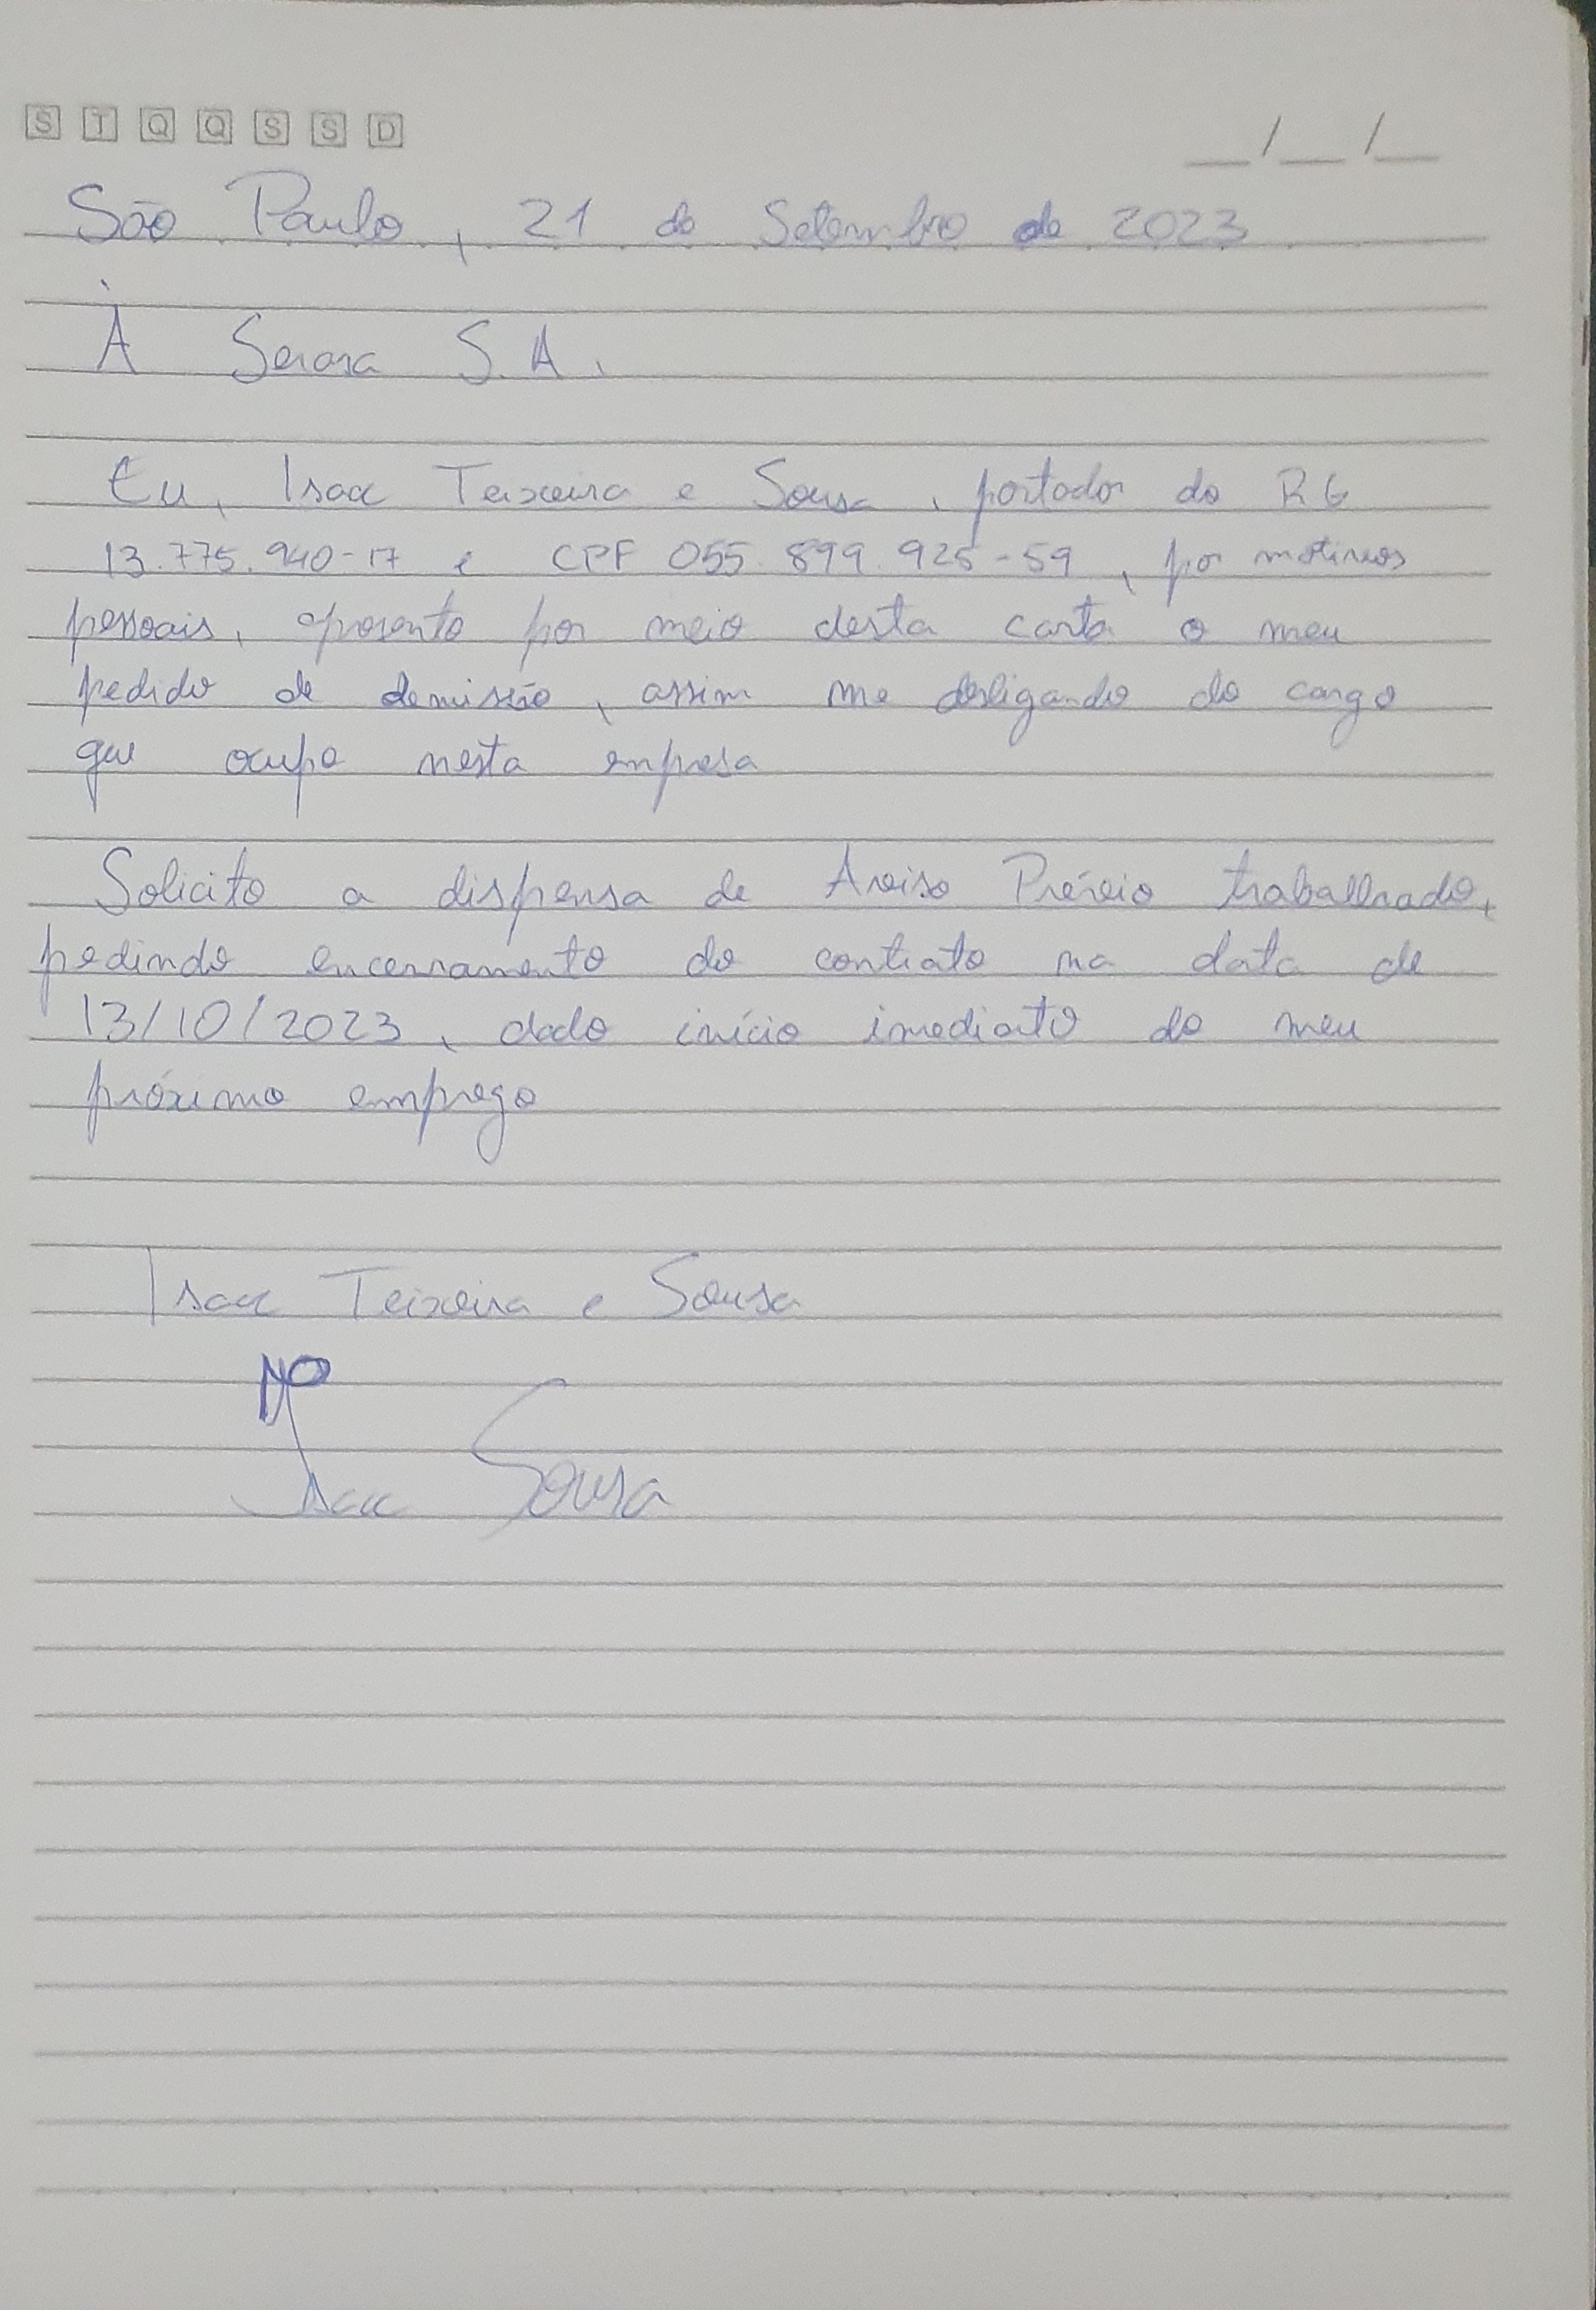 S T Q Q S S D
__/__/__
São Paulo, 21 de Setembro de 2023
À Serasa S.A.
Eu, Isac Teixeira e Sousa, portador do RG
13.775.940-17 e CPF 055.899.925-59, por motivos
pessoais, apresento por meio desta carta o meu
pedido de demissão, assim me desligando do cargo
que ocupo nesta empresa
Solicito a dispensa de Aviso Prévio trabalhado,
pedindo encerramento do contrato na data de
13/10/2023, dado início imediato do meu
próximo emprego
Isac Teixeira e Sousa
Isac Sousa